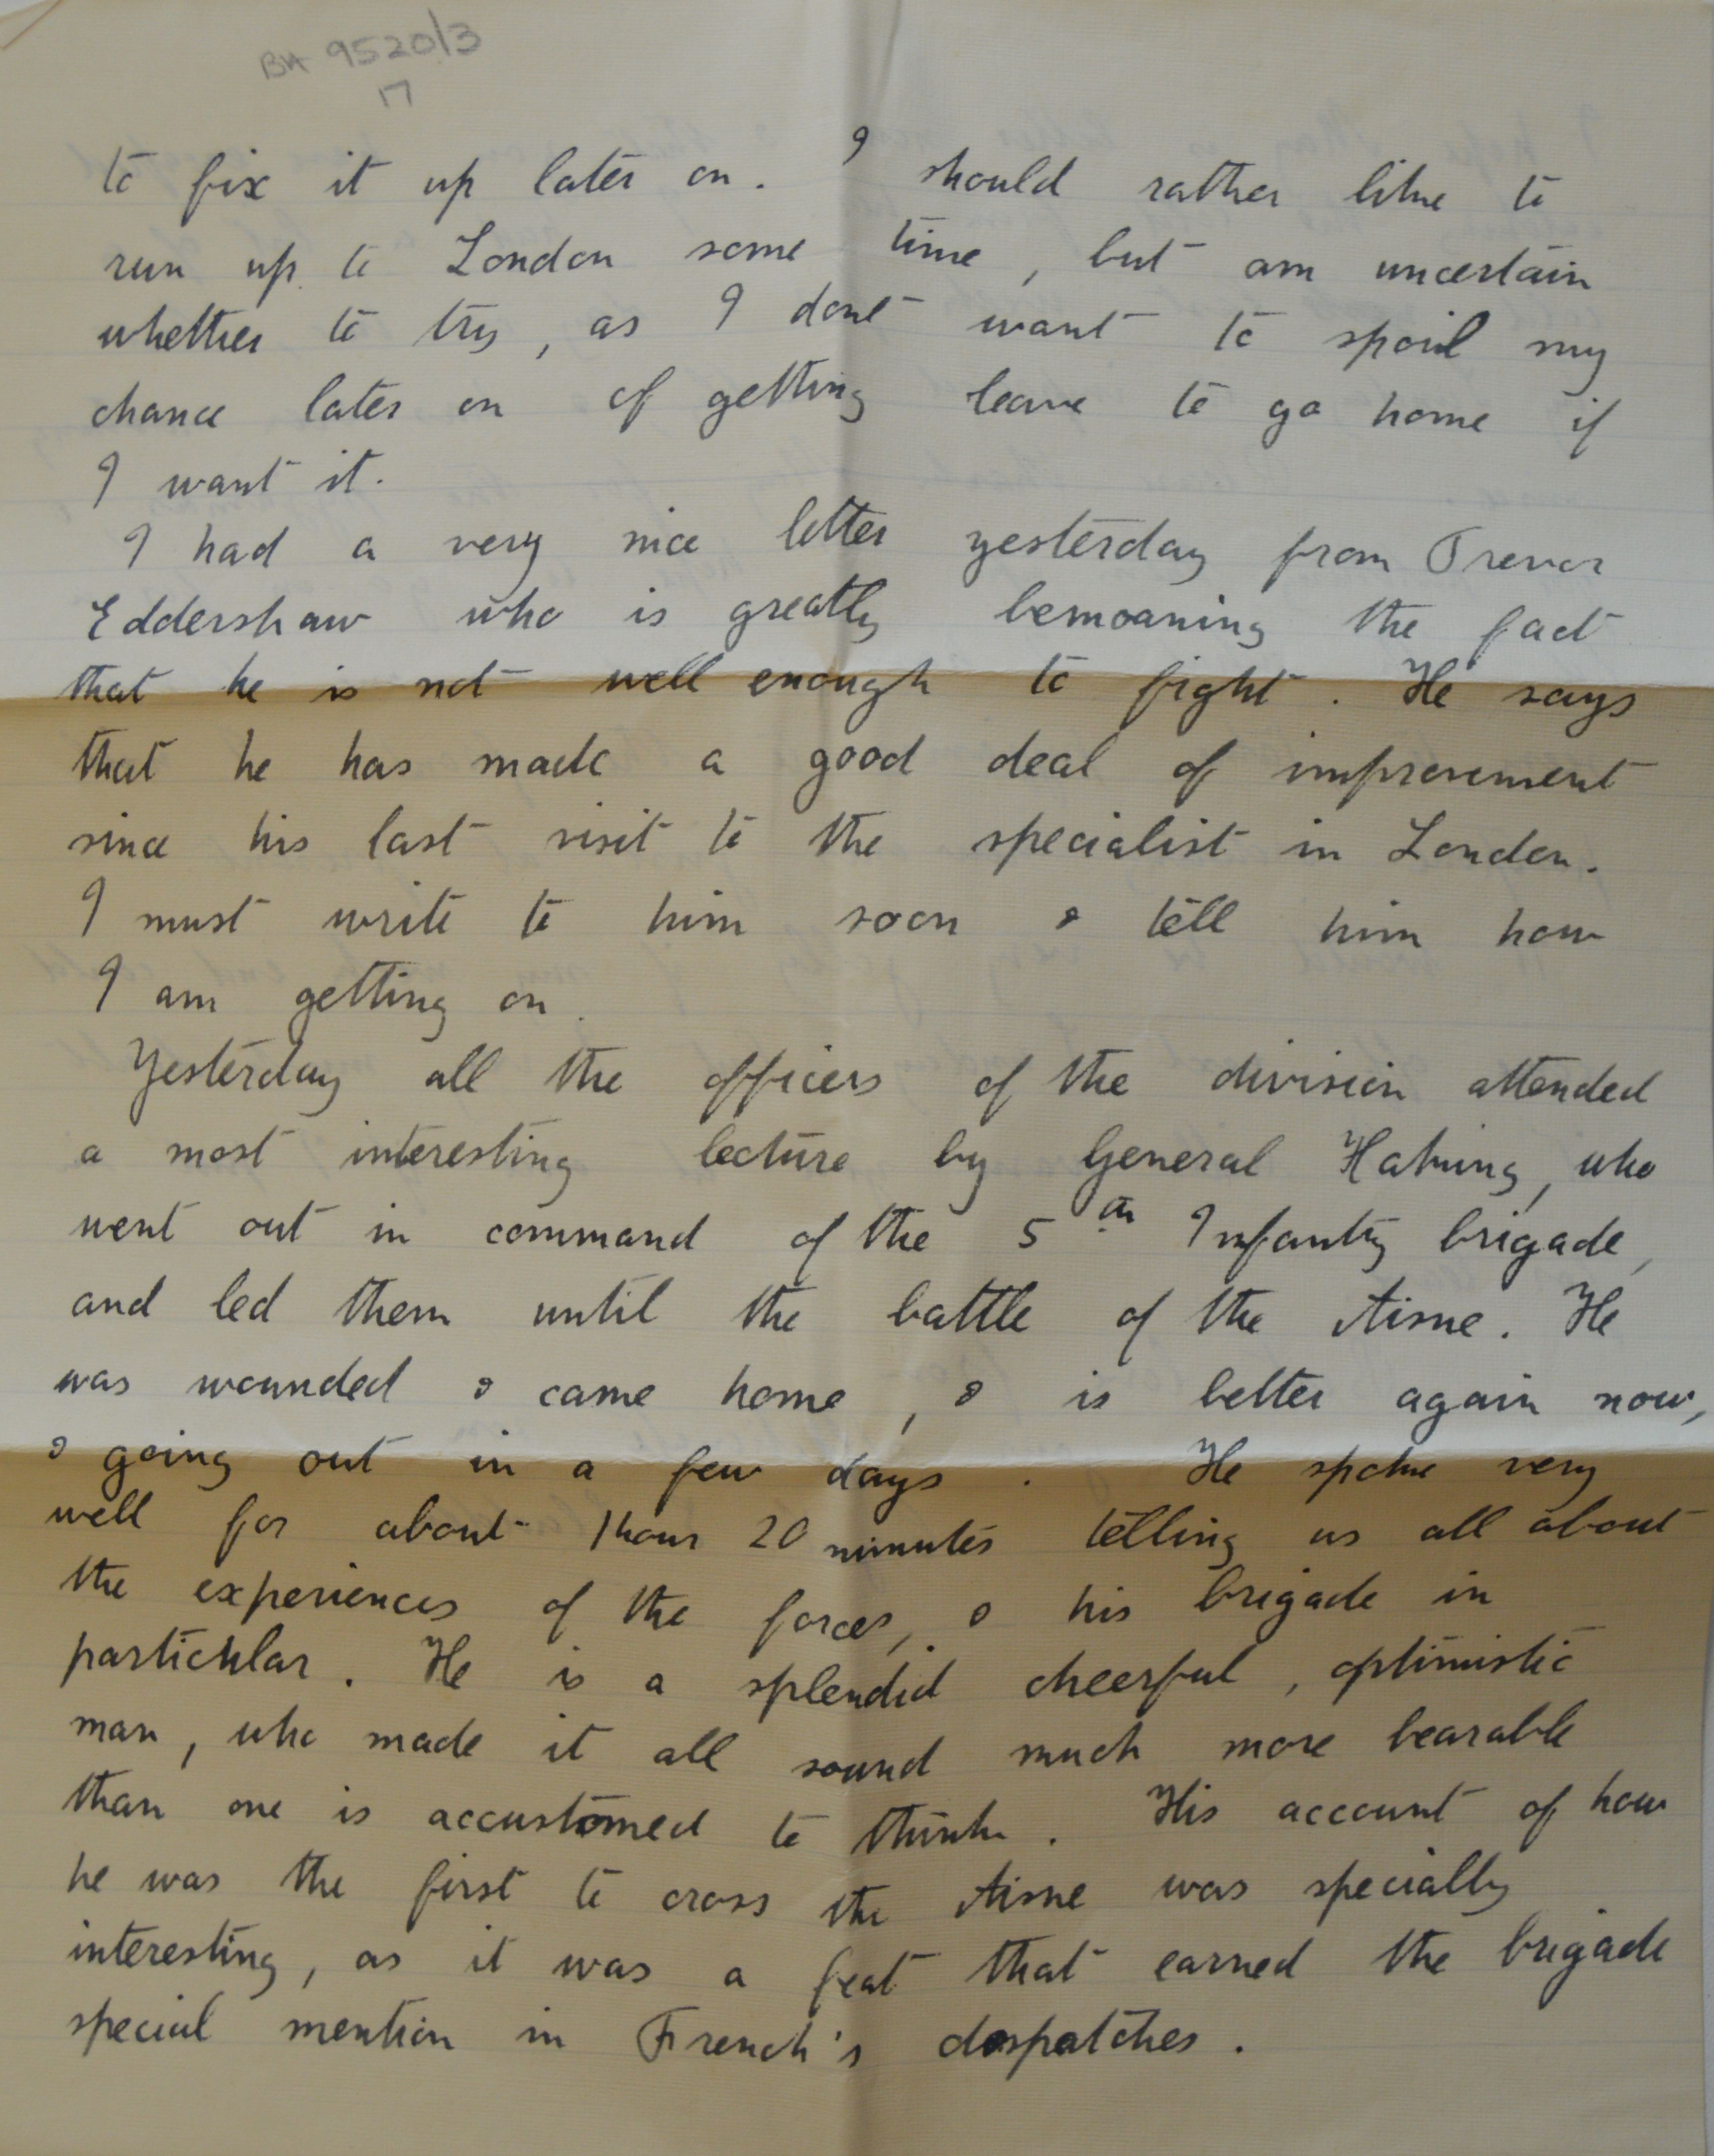 BA 9520/3
17
to fix it up later on. I should rather like to
run up to London some time, but am uncertain
whether to try, as I dont want to spoil my
chance later on of getting leave to go home if
I want it.
I had a very nice letter yesterday from Trevor
Eddershaw who is greatly bemoaning the fact
that he is not well enough to fight. He says
that he has made a good deal of improvement
since his last visit to the specialist in London.
I must write to him soon & tell him how
I am getting on.
Yesterday all the officers of the division attended
a most interesting lecture by General Haking, who
went out in command of the 5th Infantry brigade,
and led them until the battle of the Aisne. He
was wounded & came home, & is better again now,
& going out in a few days. He spoke very
well for about 1 hour 20 minutes telling us all about
the experiences of the forces, & his brigade in
particular. He is a splendid cheerful, optimistic
man, who made it all sound much more bearable
than one is accustomed to think. His account of how
he was the first to cross the Aisne was specially
interesting, as it was a feat that earned the brigade
special mention in French's despatches.